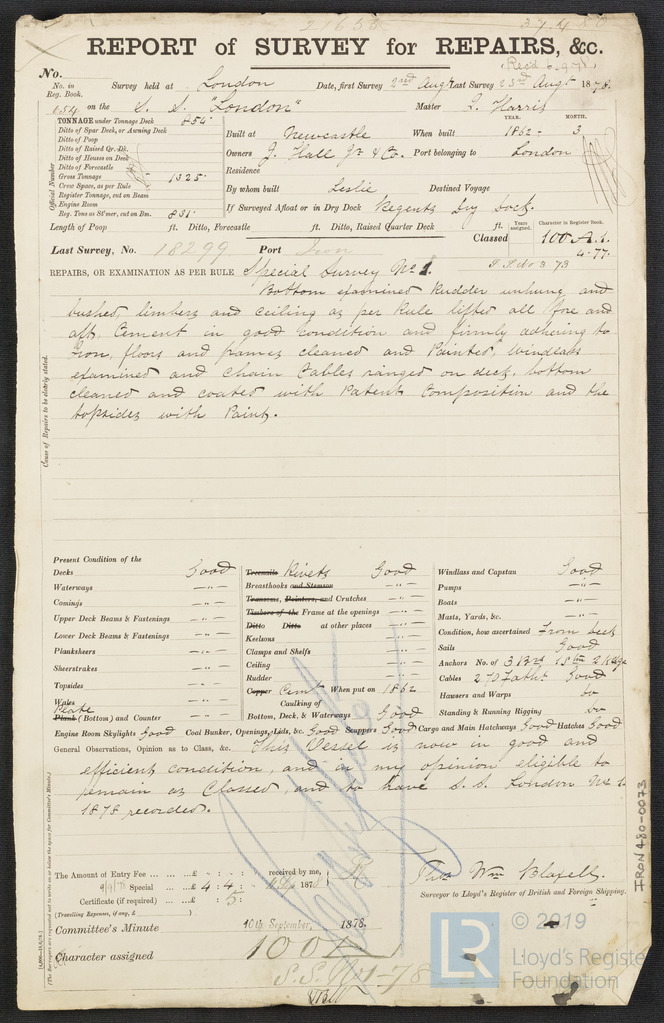 21653
REPORT of SURVEY for REPAIRS, &c.
Rec'd 6.9.78
No.
No. in Reg. Book. Survey held at London Date, first Survey 2nd Augt Last Survey 23rd Augt 1878.
654 on the S. S. "London" Master J. Harris
TONNAGE under Tonnage Deck 854
Ditto of Spar Deck, or Awning Deck
Ditto of Poop
Ditto of Raised Qr. Dk.
Ditto of Houses on Deck
Ditto of Forecastle
Gross Tonnage 1325
Crew Space, as per Rule
Register Tonnage, cut on Beam
Engine Room
Reg. Tons as St'mer, cut on Bm. 831
Official Number
YEAR. MONTH.
Built at Newcastle When built 1862 - 3
Owners J. Hall Jr & Co. Port belonging to London
Residence
By whom built Leslie Destined Voyage
If Surveyed Afloat or in Dry Dock Regents Dry Dock.
Length of Poop ft. Ditto, Forecastle ft. Ditto, Raised Quarter Deck ft.
Years assigned. Character in Register Book.
Classed 100 A.1.
4.77.
Last Survey, No. 18299 Port Iron
REPAIRS, OR EXAMINATION AS PER RULE Special Survey No 1.
Bottom examined Rudder unhung and
bushed, limbers and ceiling as per Rule lifted all fore and
aft, Cement in good condition and firmly adhering to
Iron, floors and frames cleaned and Painted, windlass
examined and Chain Cables ranged on deck, bottom
cleaned and coated with Patent Composition and the
topsides with Paint.
Cause of Repairs to be clearly stated.
Present Condition of the
Decks Good
Waterways - " -
Comings - " -
Upper Deck Beams & Fastenings - " -
Lower Deck Beams & Fastenings - " -
Planksheers - " -
Sheerstrakes - " -
Topsides - " -
Wales - " -
Plate
Plank (Bottom) and Counter - " -
Treenails Rivets Good
Breasthooks and Stemson - " -
Transoms, Pointers, and Crutches - " -
Timbers of the Frame at the openings - " -
Ditto Ditto at other places - " -
Keelsons - " -
Clamps and Shelfs - " -
Ceiling - " -
Rudder - " -
Copper Cemt When put on 1862
Caulking of
Bottom, Deck, & Waterways Good
Windlass and Capstan Good
Pumps - " -
Boats - " -
Masts, Yards, &c. - " -
Condition, how ascertained From deck
Sails Good
Anchors No. of 3 Brs 1 Stm 2 Kedge
Cables 270 Faths Good
Hawsers and Warps Do
Standing & Running Rigging Do
Engine Room Skylights Good Coal Bunker, Openings, Lids, &c. Good Scuppers Good Cargo and Main Hatchways Good Hatches Good
General Observations, Opinion as to Class, &c. This Vessel is now in good and
efficient condition, and in my opinion eligible to
remain as Classed, and to have S. S. London No 1.
1878 recorded.
(The Surveyors are requested not to write on or below the space for Committee's Minute.)
The Amount of Entry Fee ... ... £ : : received by me,
Special ... ... £ 4 : 4 :
Certificate (if required) ... : 5 :
(Travelling Expenses, if any, £ )
Thos Wm Blaxell
Surveyor to Lloyd's Register of British and Foreign Shipping.
Committee's Minute 10th September, 1878.
Character assigned 100A
S.S. No 1-78
IRON 480-0073
© 2019
LR
Lloyd's Register
Foundation